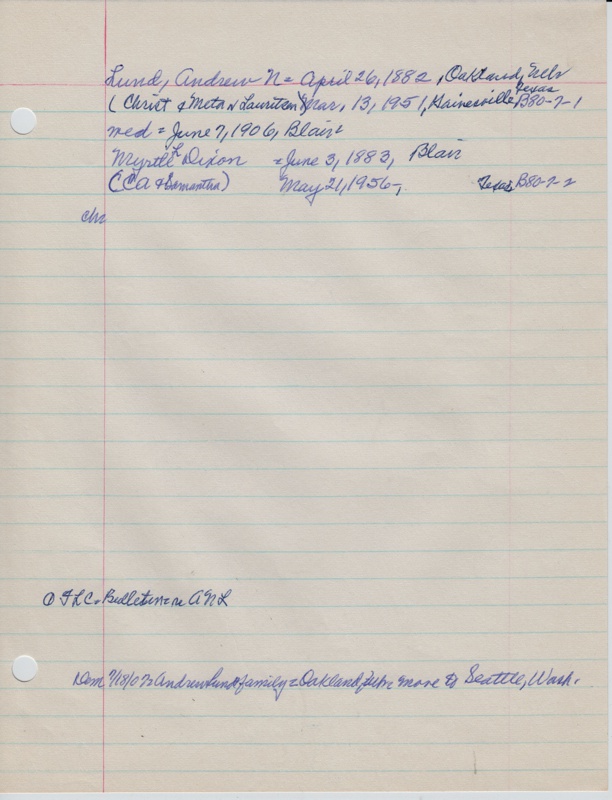 Lund, Andrew N = April 26, 1882, Oakland, Nebr
(Christ & Meta N Lauritsen) Mar, 13, 1951, Gainesville, Texas B80-7-1
med = June 7, 1906, Blair
Myrtle L Dixon = June 3, 1883, Blair
(CA & Samantha) May 21, 1956-, Texas B80-7-2
ch
① FLC = Bulletin = re ANL
Dem 7/18/07 = Andrew Lund family = Oakland, Nebr move to Seattle, Wash.